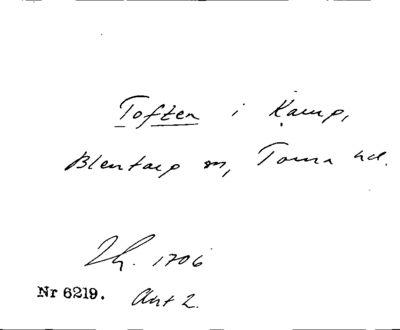 Toften i Kamp,
Blentarp sn, Torna hd.
Jh. 1706
Nr 6219. Akt 2.